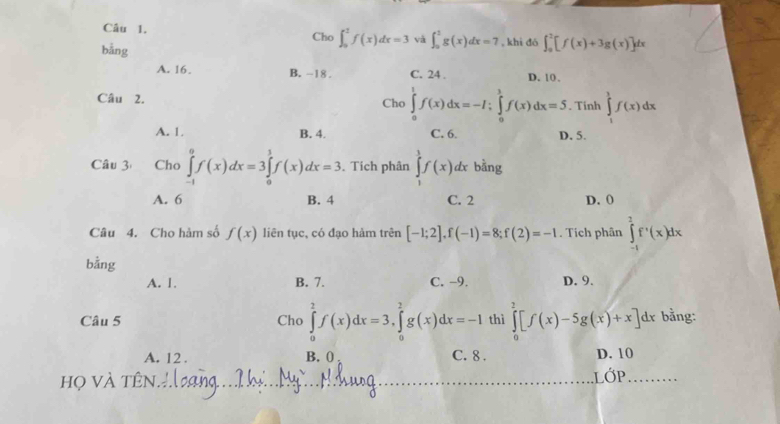 Câu 1. Cho ∫₀² f(x)dx = 3 và ∫₀² g(x)dx = 7, khi đó ∫₀² [f(x)+3g(x)]dx
bằng
A. 16. B. −18. C. 24. D. 10.
Câu 2. Cho ∫₀¹ f(x)dx = −1; ∫₀³ f(x)dx = 5. Tính ∫₁³ f(x)dx
A. 1. B. 4. C. 6. D. 5.
Câu 3 Cho ∫₋₁⁰ f(x)dx = 3∫₀³ f(x)dx = 3. Tích phân ∫₁³ f(x)dx bằng
A. 6 B. 4 C. 2 D. 0
Câu 4. Cho hàm số f(x) liên tục, có đạo hàm trên [−1;2], f(−1)=8; f(2)=−1. Tích phân ∫₋₁² f'(x)dx
bằng
A. 1. B. 7. C. −9. D. 9.
Câu 5 Cho ∫₀² f(x)dx = 3, ∫₀² g(x)dx = −1 thì ∫₀² [f(x)−5g(x)+x]dx bằng:
A. 12. B. 0. C. 8. D. 10
HỌ VÀ TÊN... Hoàng Thị Mỹ Nhung ... LỚP.........